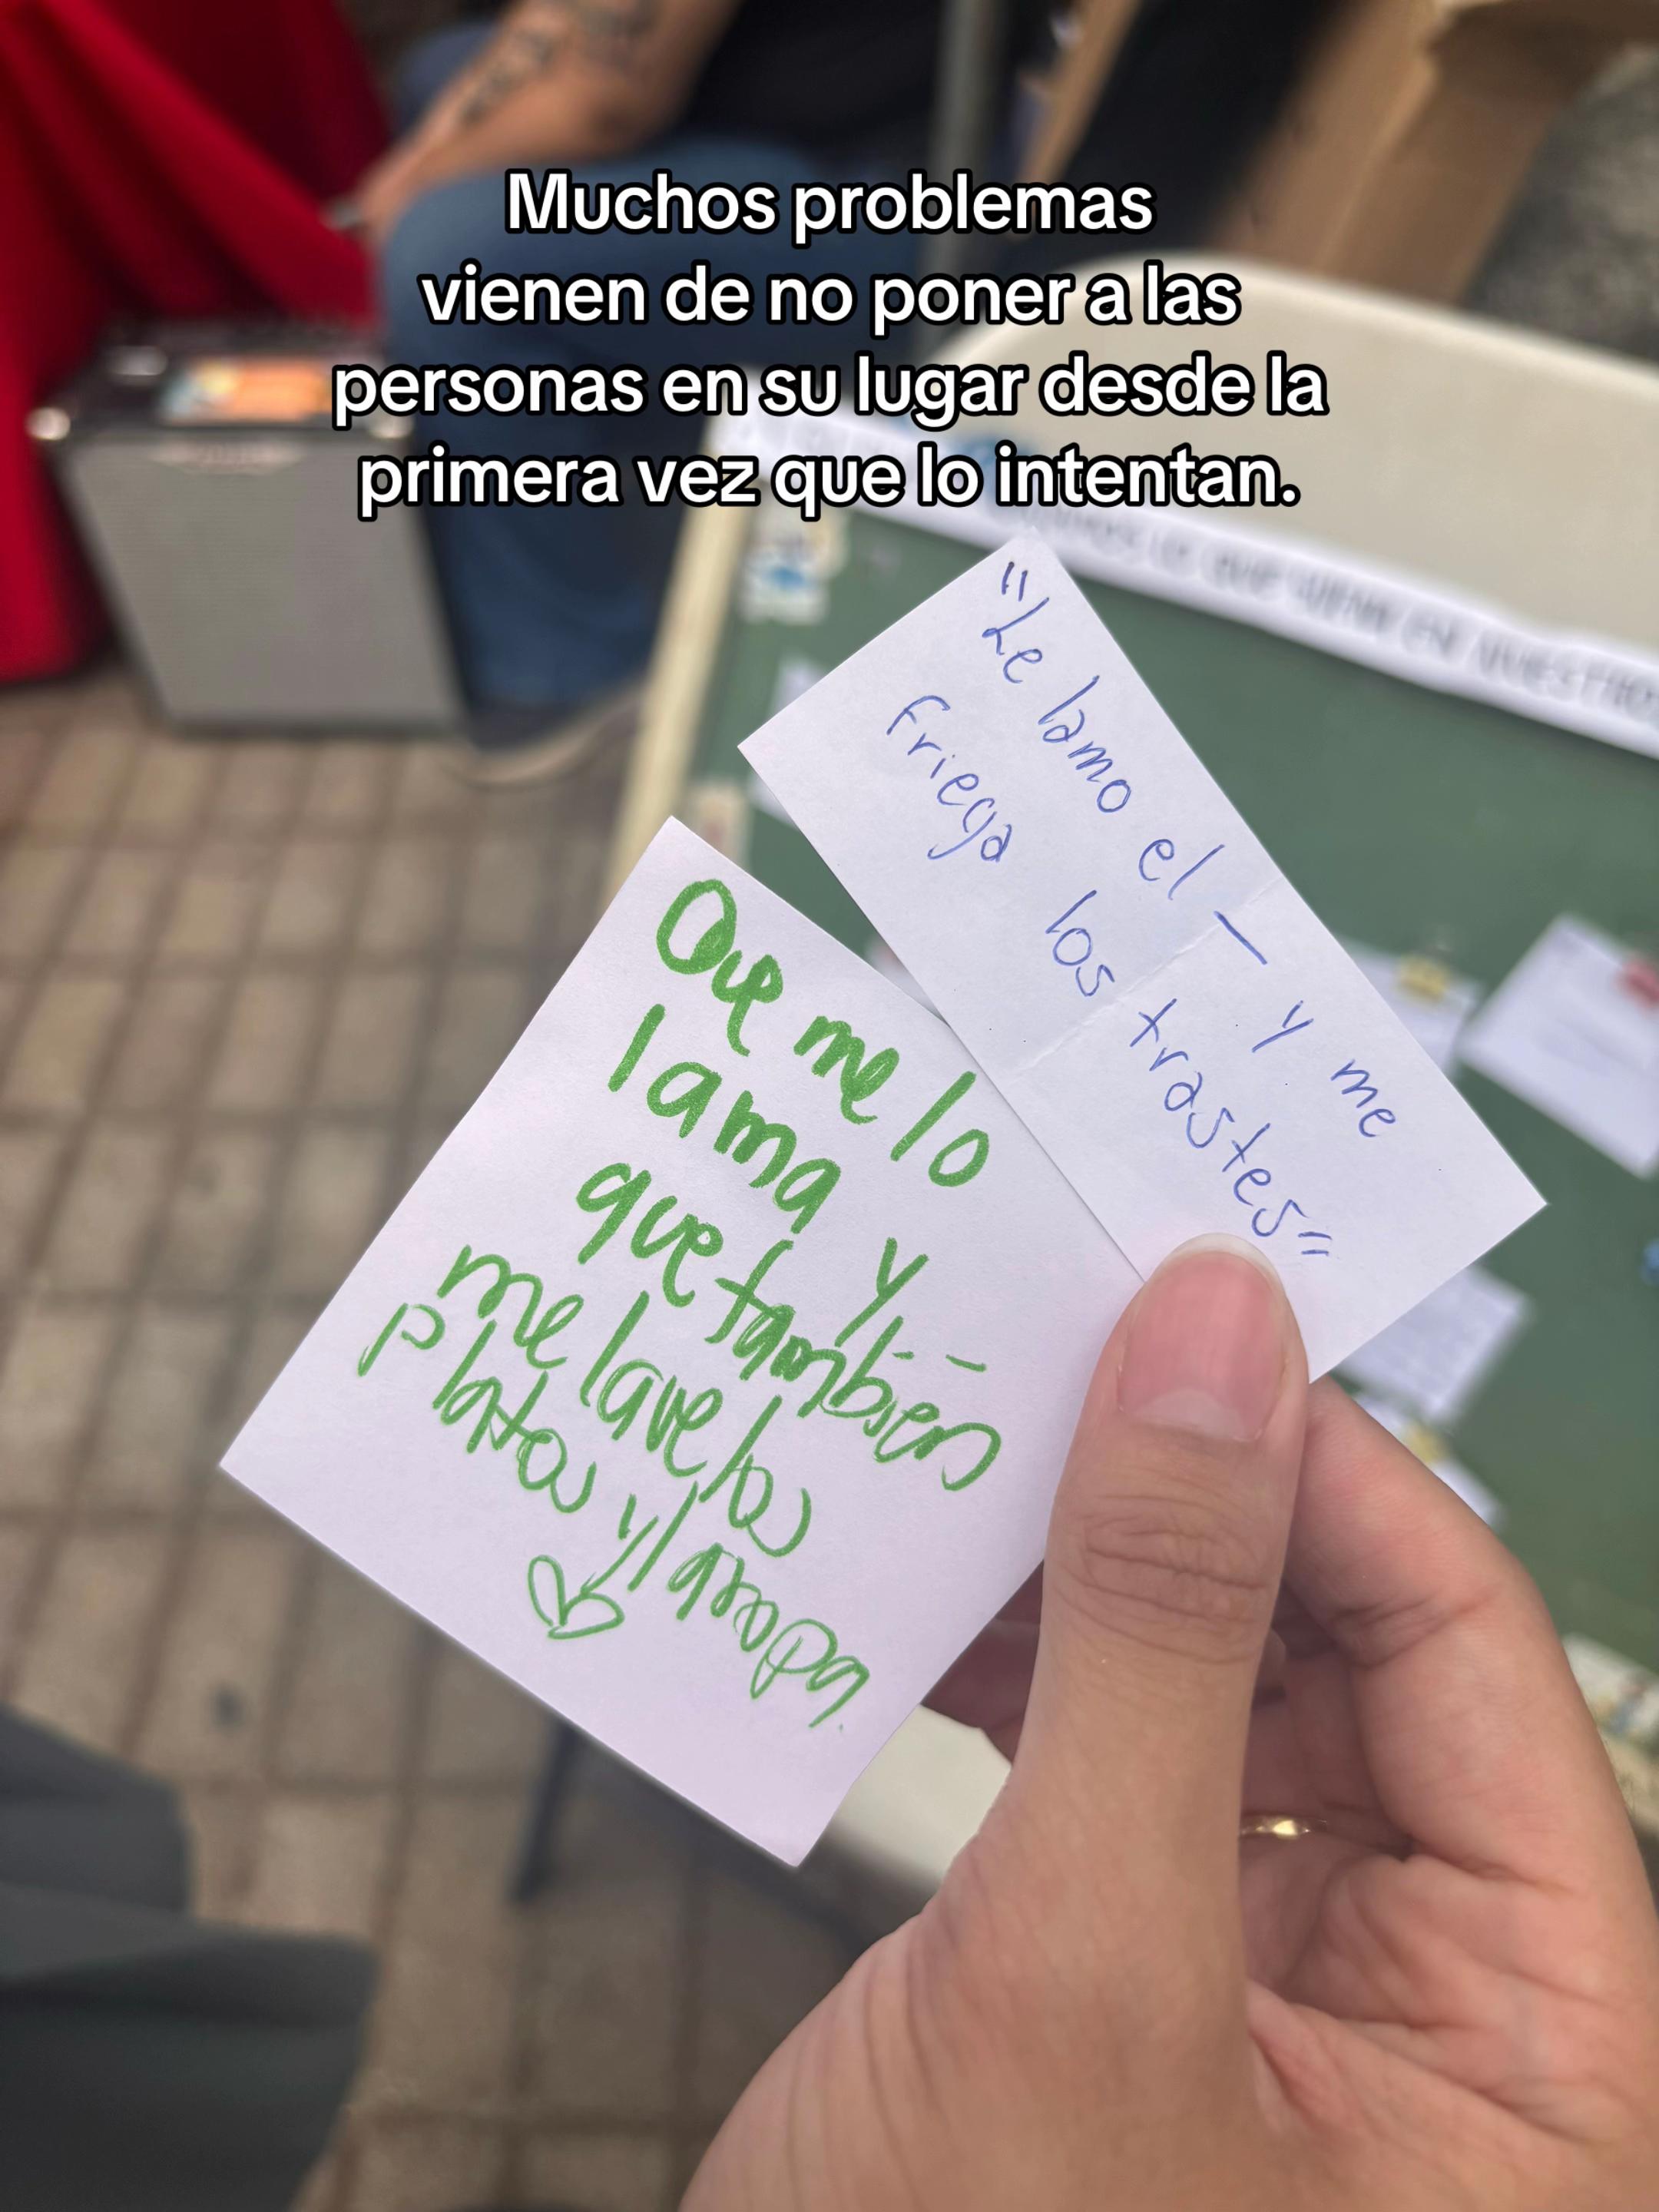 Muchos problemas
vienen de no poner a las
personas en su lugar desde la
primera vez que lo intentan.
"Le lamo el _ y me
friega los trastes"
Que me lo
lama y
que también
me lave los
platos y la ropa.
LO QUE VIENE EN NUESTRO